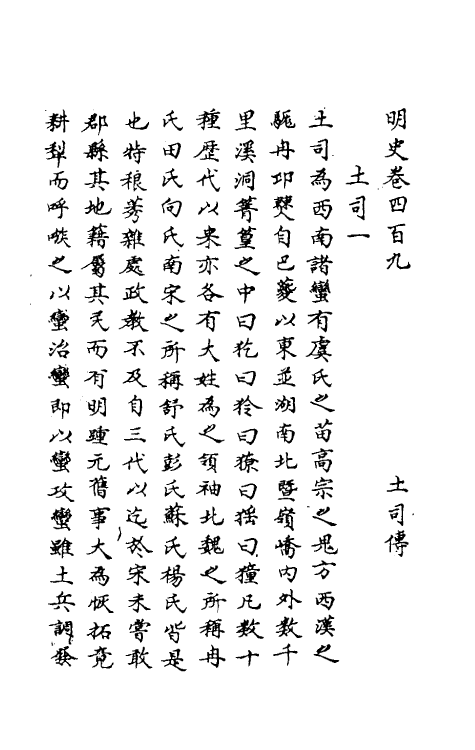 明史卷四百九 土司傳
土司一
土司為西南諸蠻有虞氏之苗高宗之鬼方西漢之
駹冉卭僰自巴夔以東並湖南北暨嶺嶠內外数千
里溪洞箐篁之中曰犵曰狑曰獠曰猺曰獞凡数十
種歴代以来亦各有大姓為之領袖北魏之所稱冉
氏田氏向氏南宋之所稱舒氏彭氏蘇氏楊氏皆是
也特稂莠雜處政教不及自三代以迄於宋未嘗敢
郡縣其地籍屬其民而有明踵元舊事大為恢拓竟
耕犁而呼噉之以蠻治蠻即以蠻攻蠻雖土兵調發